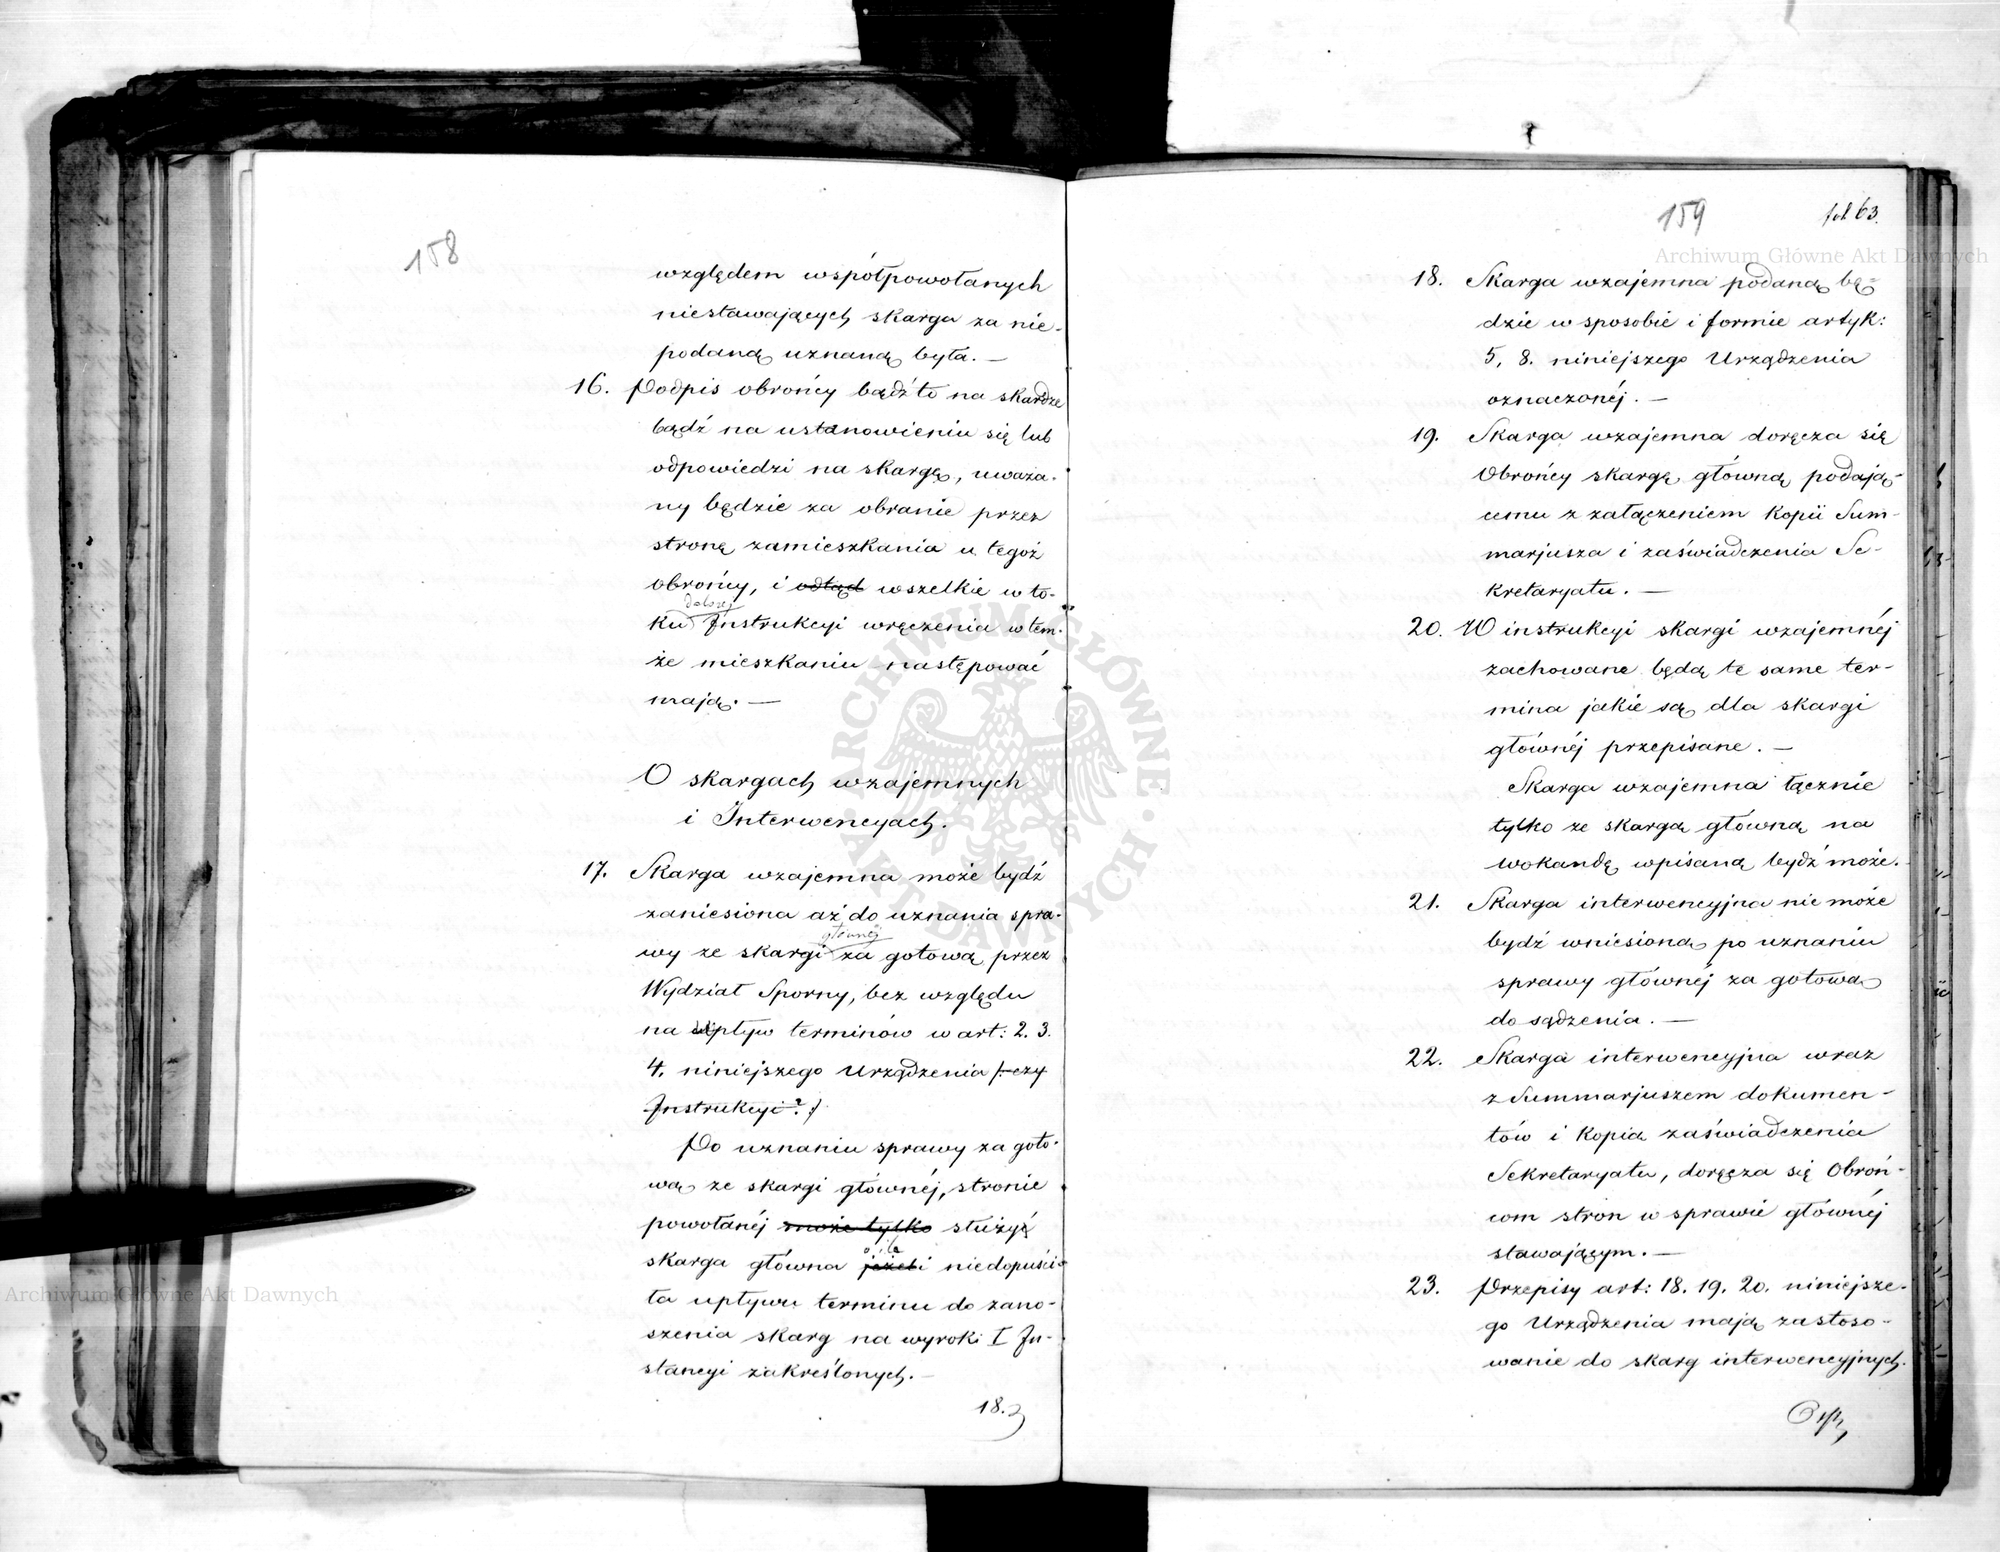 158
względem współpowołanych
niestawających skarga za nie-
podaną uznaną była. —
16. Podpis obrońcy bądź to na skardze
bądź na ustanowieniu się lub
odpowiedzi na skargę, uważa-
ny będzie za obranie przez
stronę zamieszkania u tegoż
obrońcy, i odtąd wszelkie w to-
dalszej
ku Instrukcyi wręczenia w tem-
że mieszkaniu następować
mają. —
O skargach wzajemnych
i Interwencyach.
17. Skarga wzajemna może bydź
zaniesiona aż do uznania spra-
głównéj
wy ze skargi za gotową przez
Wydział Sporny, bez względu
na upływ terminów w art: 2. 3.
4. niniejszego Urządzenia /: czy
Instrukcyi? :/
Po uznaniu sprawy za goto-
wą ze skargi głownéj, stronie
powołanéj może tylko służyć
o ile
skarga główna jeżeli niedopuści-
ła upływu terminu do zano-
szenia skarg na wyroki I In-
stancyi zakreślonych. —
18.
159
fol 63.
18. Skarga wzajemna podaną bę-
dzie w sposobie i formie artyk:
5, 8. niniejszego Urządzenia
oznaczonéj. —
19. Skarga wzajemna doręcza się
Obrońcy skargę główną podają-
cemu z załączeniem Kopii Sum-
marjusza i zaświadczenia Se-
kretaryatu. —
20. W instrukcyi skargi wzajemnéj
zachowane będą te same ter-
mina jakie są dla skargi
głównéj przepisane. —
Skarga wzajemna łącznie
tylko ze skargą główną na
wokandę wpisaną bydź może.
21. Skarga interwencyjna nie może
bydź wniesioną po uznaniu
sprawy głównéj za gotową
do sądzenia. —
22. Skarga interwencyjna wraz
z Summarjuszem dokumen-
tów i Kopią zaświadczenia
Sekretaryatu, doręcza się Obroń-
com stron w sprawie głównéj
stawającym. —
23. Przepisy art: 18. 19. 20. niniejsze-
go Urządzenia mają zastoso-
wanie do skarg interwencyjnych.
Archiwum Główne Akt Dawnych
Archiwum Główne Akt Dawnych
ARCHIWUM GŁÓWNE AKT DAWNYCH